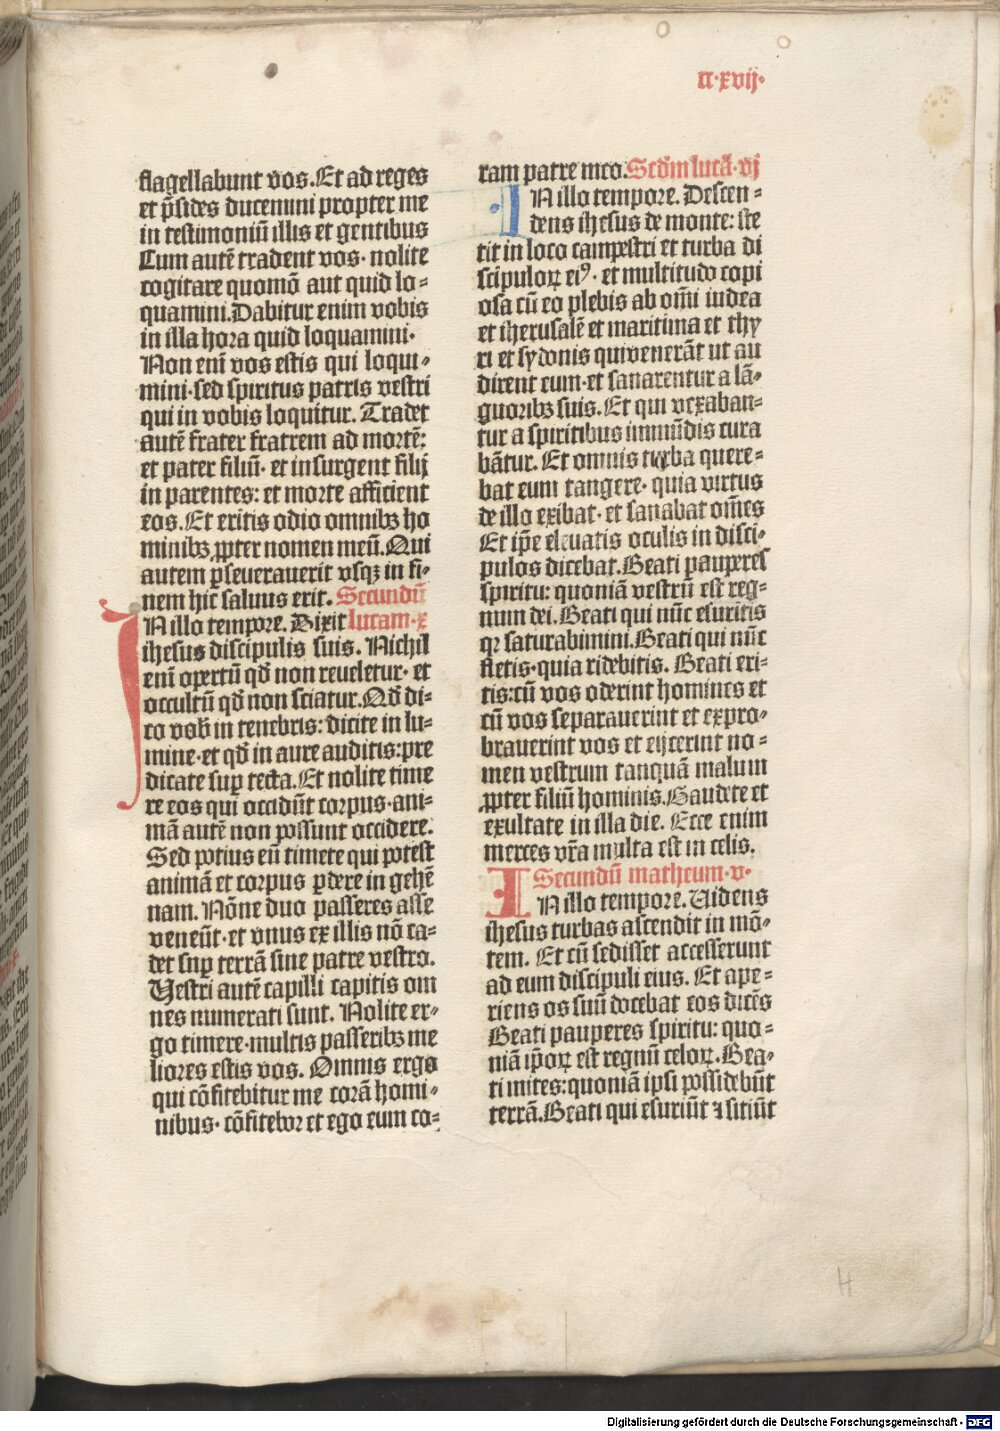 cc·xvij·
flagellabunt vos. Et ad reges
et p̄sides ducemini propter me
in testimoniū illis et gentibus
Cum autē tradent vos· nolite
cogitare quomō aut quid lo⸗
quamini. Dabitur enim vobis
in illa hora quid loquamini·
Non enī vos estis qui loqui⸗
mini· sed spiritus patris vestri
qui in vobis loquitur. Tradet
autē frater fratrem ad mortē:
et pater filiū· et insurgent filij
in parentes: et morte afficient
eos. Et eritis odio omnibꝫ ho
minibꝫ ꝓpter nomen meū. Qui
autem ꝑseuerauerit vsqꝫ in fi⸗
nem hic saluus erit. Secundū
IN illo tempore. Dixit lucam·x
ihesus discipulis suis. Nichil
enī opertū qd̄ non reueletur· et
occultū qd̄ non sciatur. Qd̄ di⸗
co vob̄ in tenebris: dicite in lu⸗
mine· et qd̄ in aure auditis: pre
dicate suꝑ tecta. Et nolite time
re eos qui occidūt corpus· ani⸗
mā autē non possunt occidere.
Sed potius eū timete qui potest
animā et corpus ꝑdere in gehē
nam. Nōne duo passeres asse
veneūt· et vnus ex illis nō ca⸗
det suꝑ terrā sine patre vestro.
Vestri autē capilli capitis om
nes numerati sunt. Nolite er⸗
go timere· multis passeribꝫ me
liores estis vos. Omnis ergo
qui cōfitebitur me corā homi⸗
nibus· cōfitebor et ego eum co⸗
ram patre meo. Scd̄m lucā·vj
IN illo tempore. Descen⸗
dens ihesus de monte: ste
tit in loco campestri et turba di
scipuloꝝ eiꝰ· et multitudo copi
osa cū eo plebis ab om̄i iudea
et iherusalē et maritima et thy
ri et sydonis qui venerāt ut au
dirent eum· et sanarentur a lā⸗
guoribꝫ suis. Et qui vexaban⸗
tur a spiritibus immūdis cura
bātur. Et omnis turba quere⸗
bat eum tangere· quia virtus
de illo exibat· et sanabat om̄es
Et ip̄e eleuatis oculis in disci⸗
pulos dicebat. Beati pauperes
spiritu: quoniā vestrū est reg⸗
num dei. Beati qui nūc esuritis
qꝛ saturabimini. Beati qui nūc
fletis· quia ridebitis. Beati eri⸗
tis: cū vos oderint homines et
cū vos separauerint et expro⸗
brauerint vos et eijcerint no⸗
men vestrum tanquā malum
ꝓpter filiū hominis. Gaudete et
exultate in illa die. Ecce enim
merces vr̄a multa est in celis.
Secundū matheum·v·
IN illo tempore. Videns
ihesus turbas ascendit in mō⸗
tem. Et cū sedisset accesserunt
ad eum discipuli eius. Et ape⸗
riens os suū docebat eos dicēs
Beati pauperes spiritu: quo⸗
niā ip̄oꝝ est regnū celoꝝ. Bea⸗
ti mites: quoniā ipsi possidebūt
terrā. Beati qui esuriūt ⁊ sitiūt
H
Digitalisierung gefördert durch die Deutsche Forschungsgemeinschaft - DFG